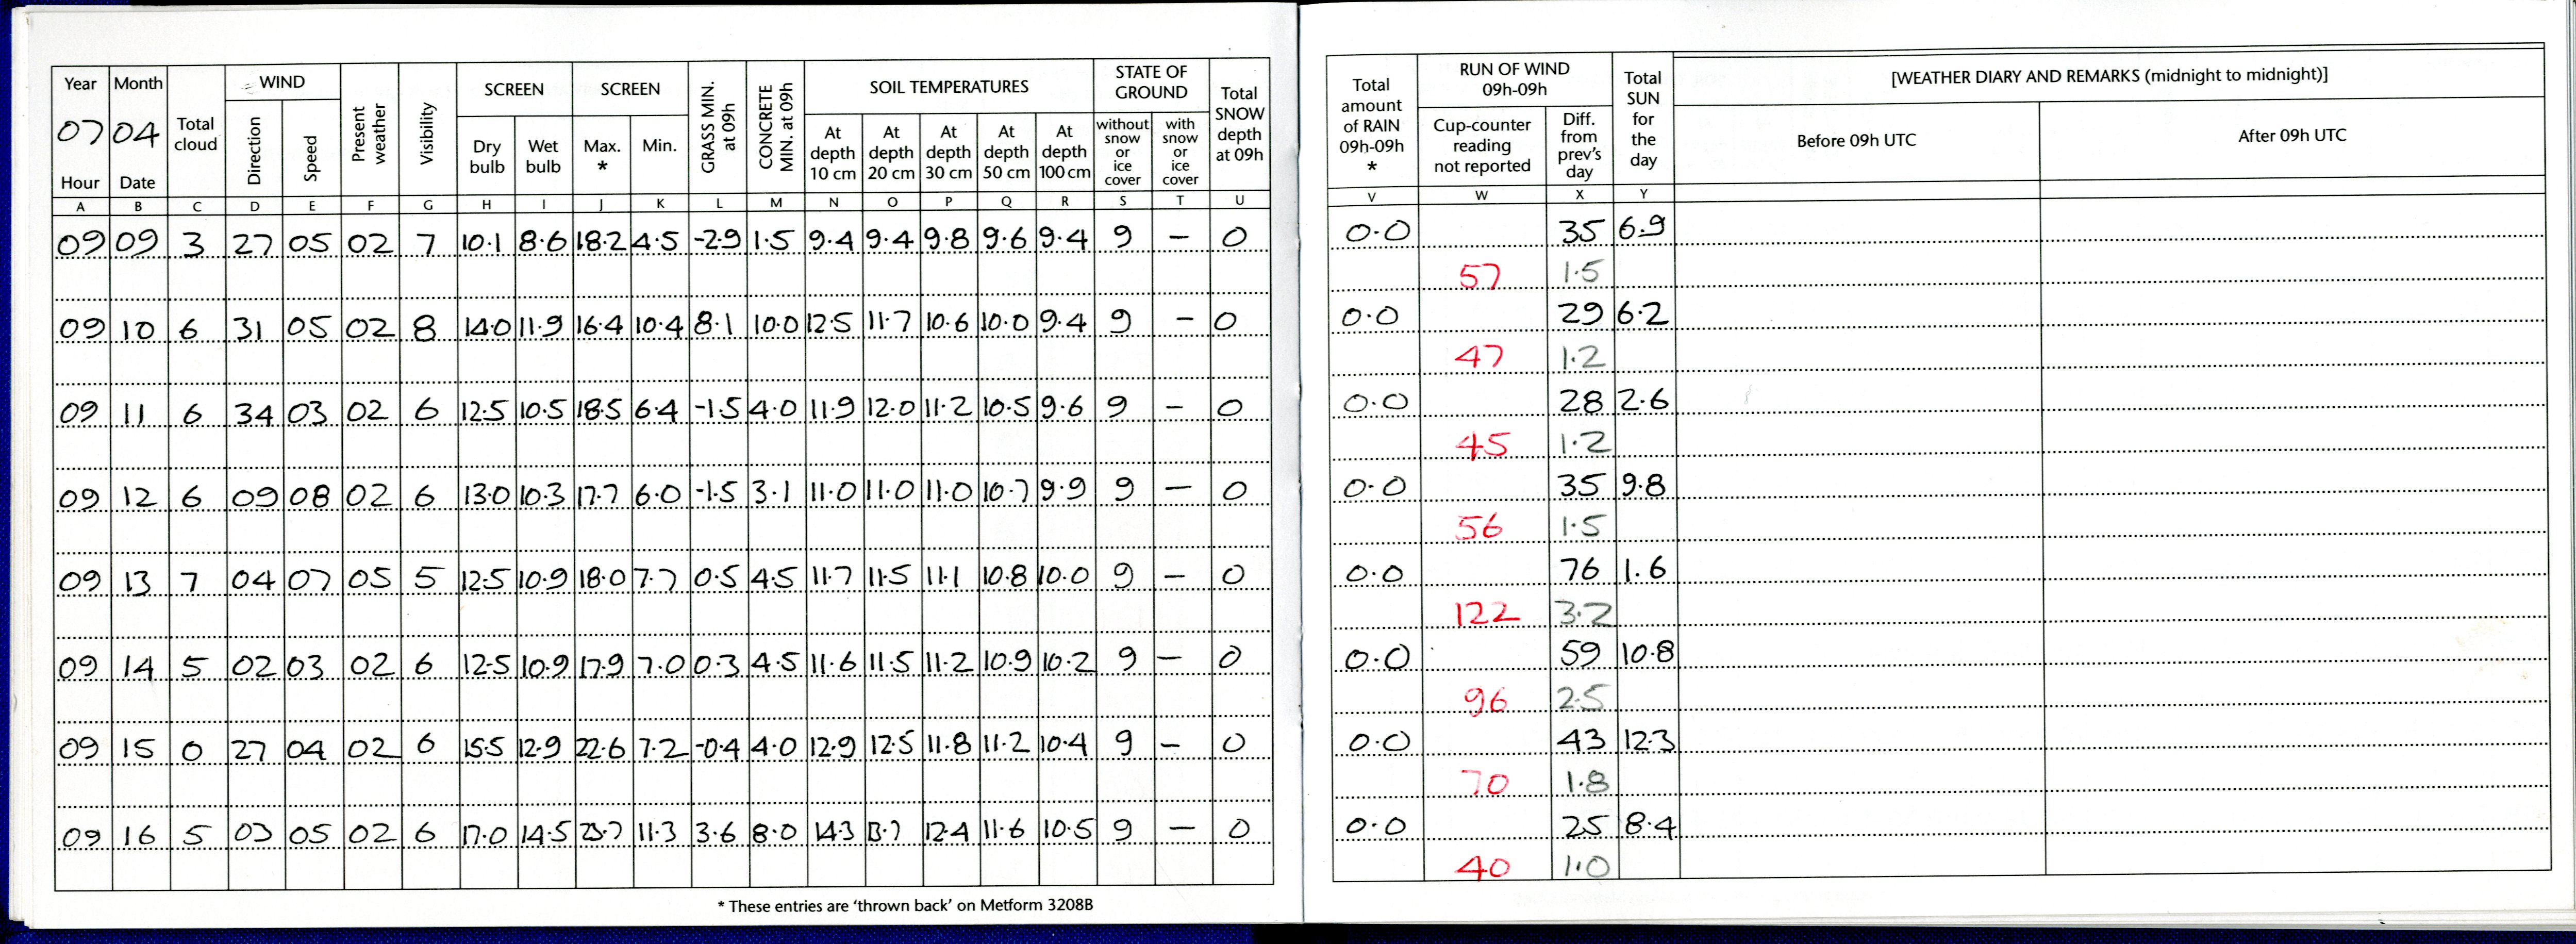 Year Month Total cloud WIND Present weather Visibility SCREEN SCREEN GRASS MIN. at 09h CONCRETE MIN. at 09h SOIL TEMPERATURES STATE OF GROUND Total SNOW depth at 09h
07 04 Direction Speed Dry bulb Wet bulb Max. * Min. At depth 10 cm At depth 20 cm At depth 30 cm At depth 50 cm At depth 100 cm without snow or ice cover with snow or ice cover
Hour Date
A B C D E F G H I J K L M N O P Q R S T U
09 09 3 27 05 02 7 10.1 8.6 18.2 4.5 -2.9 1.5 9.4 9.4 9.8 9.6 9.4 9 - 0
09 10 6 31 05 02 8 14.0 11.9 16.4 10.4 8.1 10.0 12.5 11.7 10.6 10.0 9.4 9 - 0
09 11 6 34 03 02 6 12.5 10.5 18.5 6.4 -1.5 4.0 11.9 12.0 11.2 10.5 9.6 9 - 0
09 12 6 09 08 02 6 13.0 10.3 17.7 6.0 -1.5 3.1 11.0 11.0 11.0 10.7 9.9 9 - 0
09 13 7 04 07 05 5 12.5 10.9 18.0 7.7 0.5 4.5 11.7 11.5 11.1 10.8 10.0 9 - 0
09 14 5 02 03 02 6 12.5 10.9 17.9 7.0 0.3 4.5 11.6 11.5 11.2 10.9 10.2 9 - 0
09 15 0 27 04 02 6 15.5 12.9 22.6 7.2 -0.4 4.0 12.9 12.5 11.8 11.2 10.4 9 - 0
09 16 5 03 05 02 6 17.0 14.5 23.7 11.3 3.6 8.0 14.3 13.7 12.4 11.6 10.5 9 - 0
* These entries are 'thrown back' on Metform 3208B
Total amount of RAIN 09h-09h * RUN OF WIND 09h-09h Total SUN for the day [WEATHER DIARY AND REMARKS (midnight to midnight)]
Cup-counter reading not reported Diff. from prev's day Before 09h UTC After 09h UTC
V W X Y
0.0 35 6.9
57 1.5
0.0 29 6.2
47 1.2
0.0 28 2.6
45 1.2
0.0 35 9.8
56 1.5
0.0 76 1.6
122 3.2
0.0 59 10.8
96 2.5
0.0 43 12.3
70 1.8
0.0 25 8.4
40 1.0